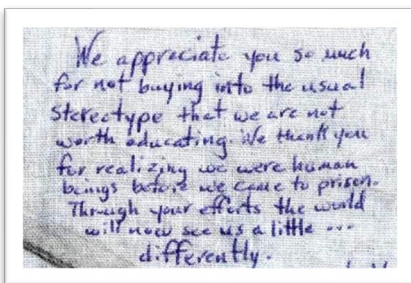 We appreciate you so much
for not buying into the usual
stereotype that we are not
worth educating. We thank you
for realizing we were human
beings before we came to prison.
Through your efforts the world
will now see us a little ...
differently.